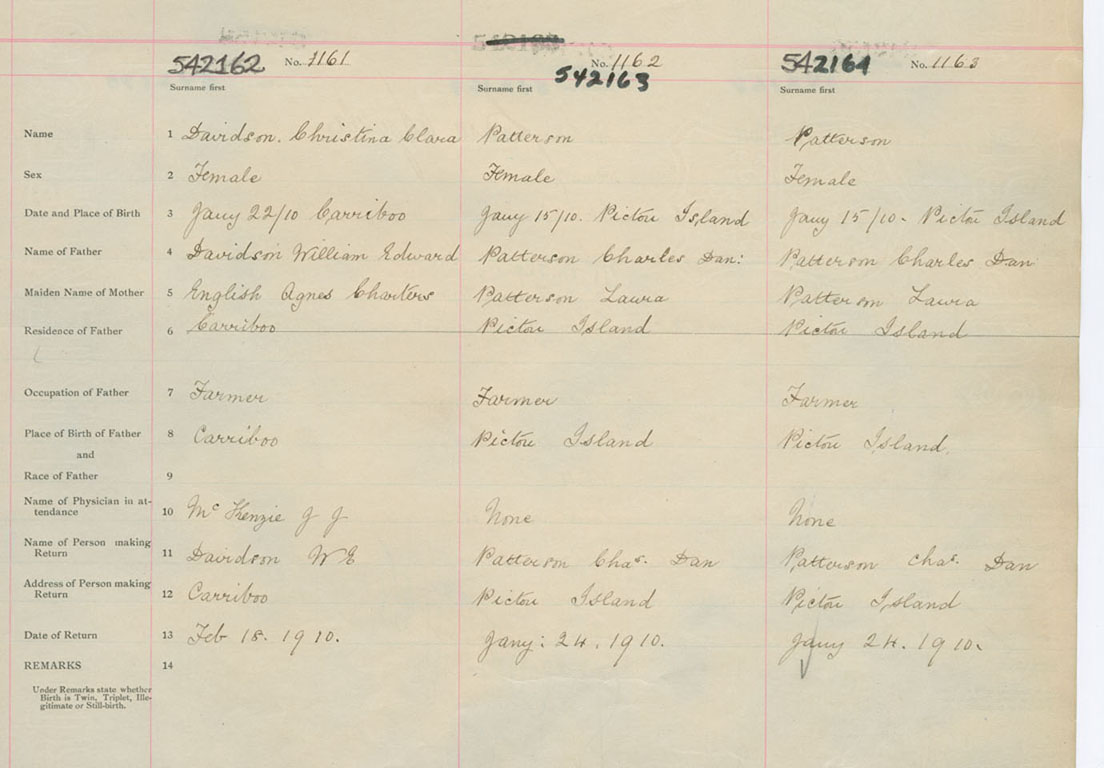 542162 No. 1161 No. 1162 542164 No. 1163
542163
Surname first Surname first Surname first
Name 1 Davidson. Christina Clara Patterson Patterson
Sex 2 Female Female Female
Date and Place of Birth 3 Jany 22/10 Carriboo Jany 15/10. Pictou Island Jany 15/10- Pictou Island
Name of Father 4 Davidson William Edward Patterson Charles Dan: Patterson Charles Dan
Maiden Name of Mother 5 English Agnes Charters Patterson Laura Patterson Laura
Residence of Father 6 Carriboo Pictou Island Pictou Island
Occupation of Father 7 Farmer Farmer Farmer
Place of Birth of Father 8 Carriboo Pictou Island Pictou Island.
and
Race of Father 9
Name of Physician in at-
tendance 10 Mc Kenzie J J None None
Name of Person making
Return 11 Davidson W E Patterson Chas. Dan Patterson Chas. Dan
Address of Person making
Return 12 Carriboo Pictou Island Pictou Island
Date of Return 13 Feb 18. 1910. Jany: 24. 1910. Jany 24. 1910.
REMARKS 14
Under Remarks state whether
Birth is Twin, Triplet, Ille-
gitimate or Still-birth.